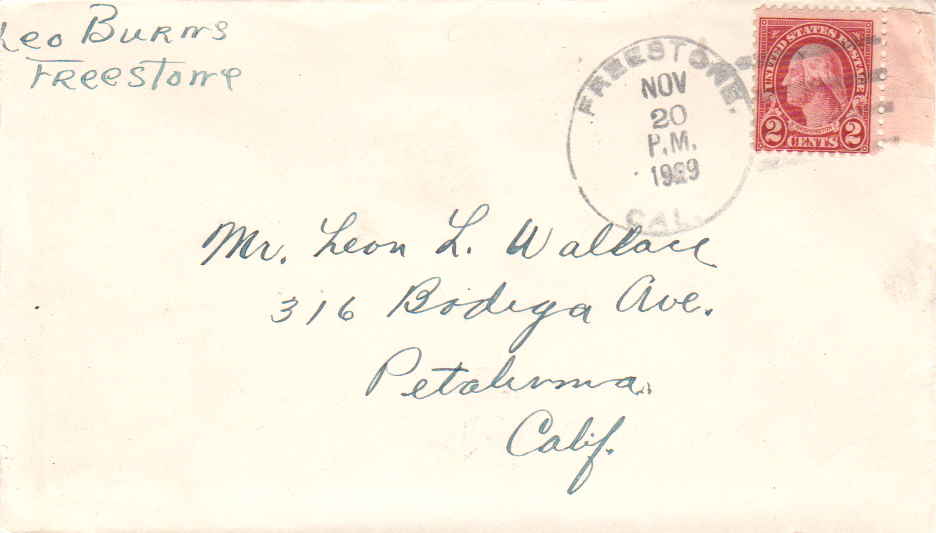 Leo Burns
Freestone
FREESTONE,
NOV
20
P.M.
1929
CAL.
UNITED STATES POSTAGE
WASHINGTON
2 CENTS 2
Mr. Leon L. Wallace
316 Bodega Ave.
Petaluma
Calif.